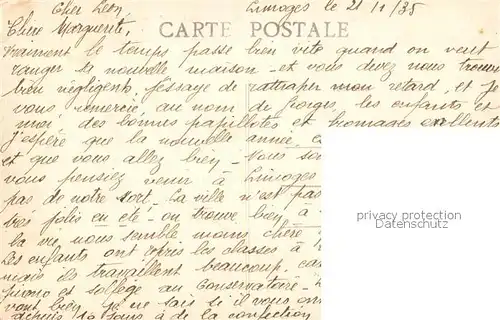 Cher Léon, Limoges le 21/1/35
Chère Marguerite, CARTE POSTALE
Vraiment le temps passe bien vite quand on veut
ranger sa nouvelle maison - et vous devez nous trouver
bien négligents, j'essaye de rattraper mon retard, et je
vous remercie au nom de Georges, les enfants et
moi, des bonnes papillotes et fromages excellents
J'espère que la nouvelle année,
et que vous allez bien - Nous
vous pensiez venir à Limoges
pas de notre - La ville n'est pas
très jolie en été - on trouve bien à
la vie nous semble moins chère
Les enfants ont repris les classes à
mais ils travaillent beaucoup,
piano et solfège au Conservatoire -
vont bien, je ne sais si il vous
depuis 10 jours à de la confection
privacy protection
Datenschutz